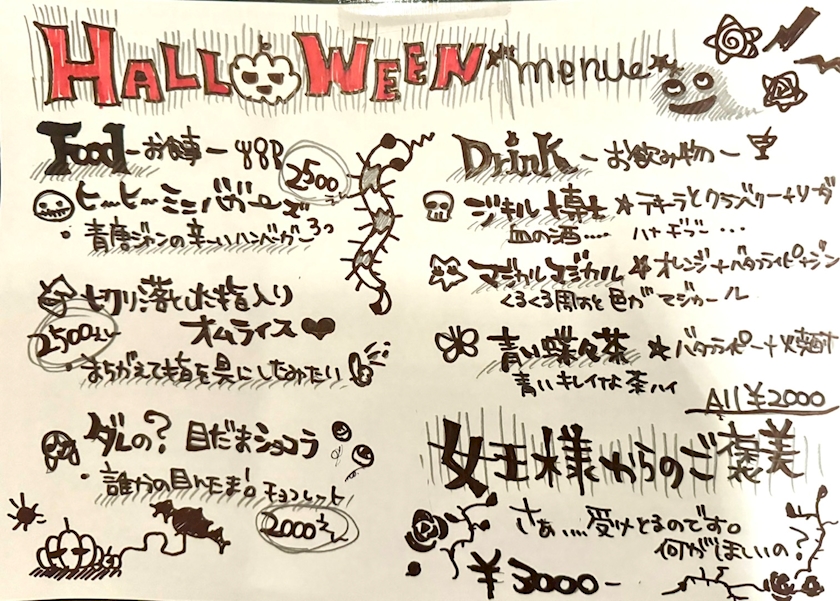 HALLOWEEN menue
Food -お食事-
ヒーヒーミニバガーズ
2500
・青唐ジャンの辛ーいハンバーガー3コ
切り落とした指入り
オムライス♥
2500えん
・まちがえて指を具にしたみたい
ダレの?目だまショコラ
・誰かの目んたま!。チョコレット
2000えん
Drink -お飲み物-
ジキル博士 ★テキーラとクランベリー+ソーダ
血の酒.... ハナヂブー...
マジカルマジカル ★オレンジ+バタフライピー+ジン
くるくる周すと色がマジカール
青い蝶々茶 ★バタフライピー+焼酎
青いキレイなお茶ハイ
All ¥2000
女王様からのご褒美
さぁ....受けとるのです。
何がほしいの?
¥3000-